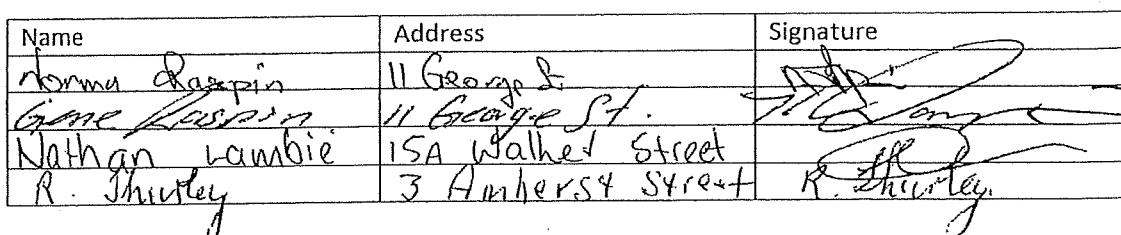 Name Address Signature
Norma Raspin 11 George St
Gene Raspin 11 George St.
Nathan Lambie 15A Walker Street
R. Shirley 3 Amherst Street R. Shirley.